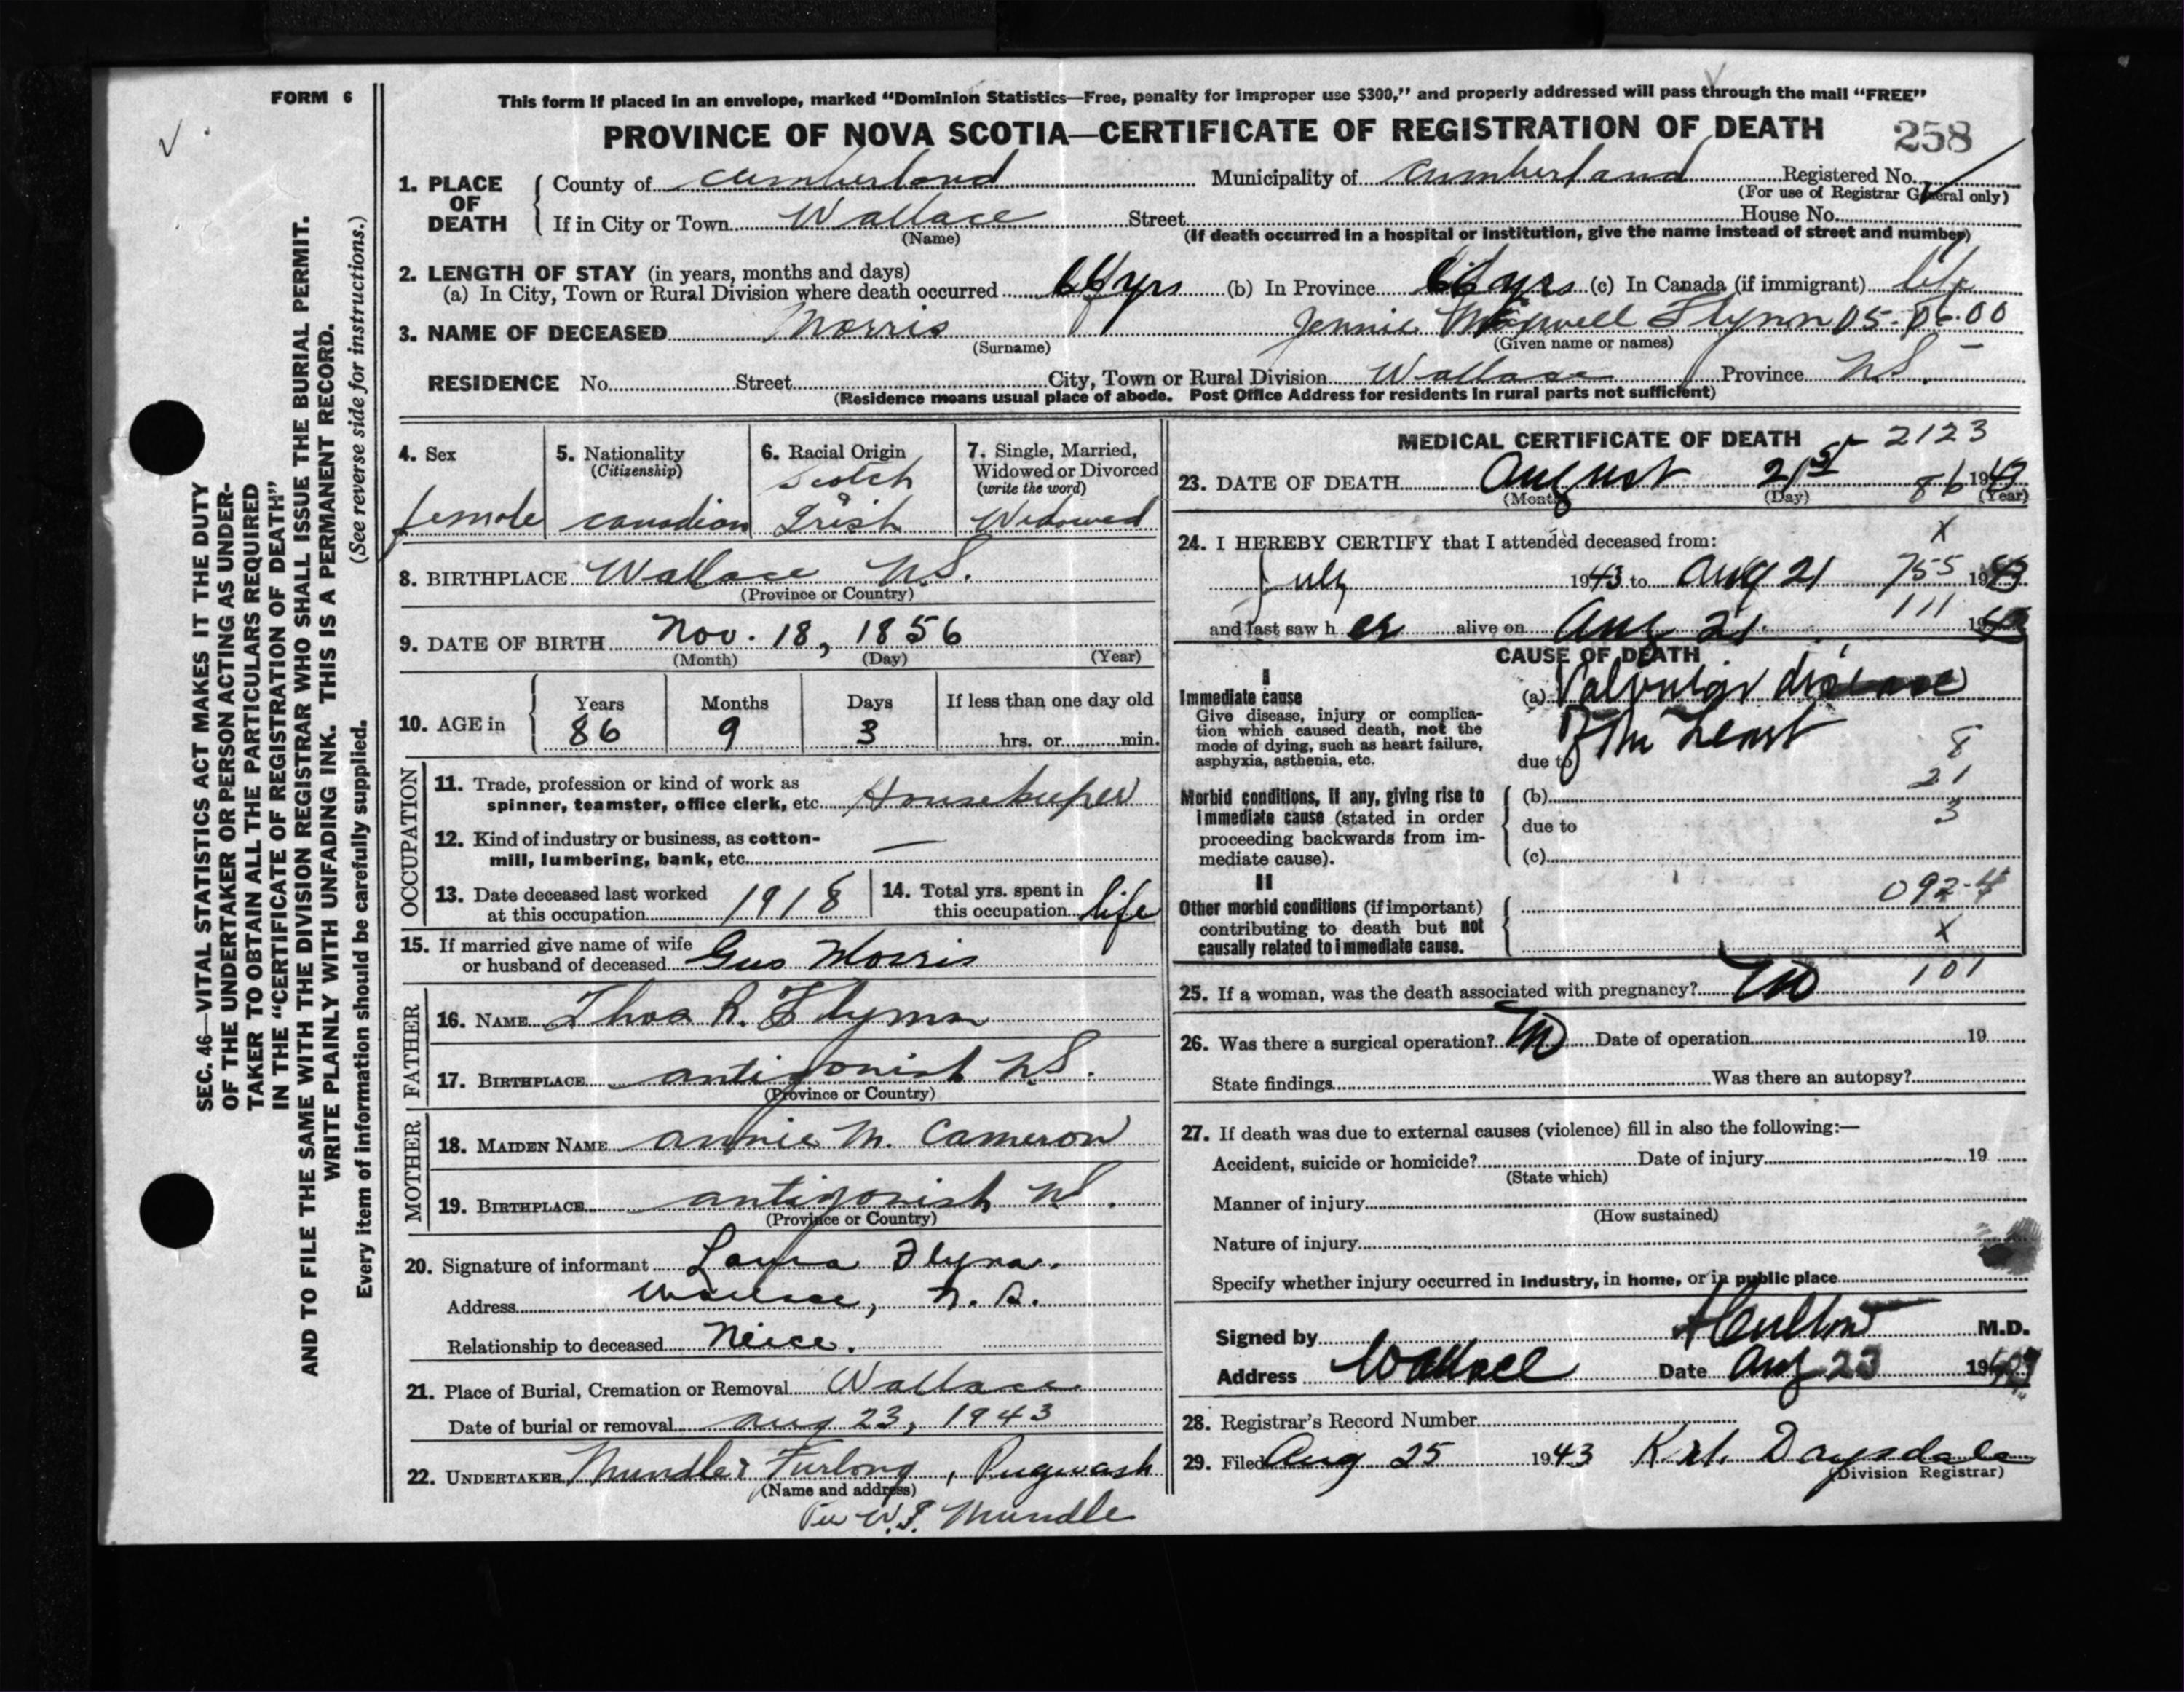 FORM 6
This form if placed in an envelope, marked “Dominion Statistics—Free, penalty for improper use $300,” and properly addressed will pass through the mail “FREE”
PROVINCE OF NOVA SCOTIA—CERTIFICATE OF REGISTRATION OF DEATH 258
1. PLACE OF DEATH
County of Cumberland Municipality of Cumberland Registered No.
(For use of Registrar General only)
If in City or Town Wallace Street House No.
(Name) (If death occurred in a hospital or institution, give the name instead of street and number)
2. LENGTH OF STAY (in years, months and days)
(a) In City, Town or Rural Division where death occurred yrs (b) In Province yrs (c) In Canada (if immigrant) life
3. NAME OF DECEASED Morris Jennie Flynn 05-06-00
(Surname) (Given name or names)
RESIDENCE No. Street City, Town or Rural Division Wallace Province N.S.
(Residence means usual place of abode. Post Office Address for residents in rural parts not sufficient)
4. Sex female
5. Nationality (Citizenship) canadian
6. Racial Origin Scotch & Irish
7. Single, Married, Widowed or Divorced (write the word) Widowed
8. BIRTHPLACE Wallace N.S.
(Province or Country)
9. DATE OF BIRTH Nov. 18, 1856
(Month) (Day) (Year)
10. AGE in Years 86 Months 9 Days 3 If less than one day old hrs. or min.
OCCUPATION
11. Trade, profession or kind of work as
spinner, teamster, office clerk, etc. Housekeeper
12. Kind of industry or business, as cotton-
mill, lumbering, bank, etc. —
13. Date deceased last worked
at this occupation 1918
14. Total yrs. spent in
this occupation life
15. If married give name of wife
or husband of deceased Gus Morris
FATHER
16. NAME Thos R. Flynn
17. BIRTHPLACE antigonish N.S.
(Province or Country)
MOTHER
18. MAIDEN NAME annie M. Cameron
19. BIRTHPLACE antigonish N.S.
(Province or Country)
20. Signature of informant Laura Flynn.
Address Wallace, N.S.
Relationship to deceased Neice.
21. Place of Burial, Cremation or Removal Wallace
Date of burial or removal aug 23, 1943
22. UNDERTAKER Mundle & Furlong, Pugwash
(Name and address)
Per W.F. Mundle
MEDICAL CERTIFICATE OF DEATH 2123
23. DATE OF DEATH August 21st 86 1943
(Month) (Day) (Year)
24. I HEREBY CERTIFY that I attended deceased from: X
July 1943 to Aug 21 755 1943
and last saw h er alive on Aug 21 111 1943
CAUSE OF DEATH
I
Immediate cause
Give disease, injury or complica-
tion which caused death, not the
mode of dying, such as heart failure,
asphyxia, asthenia, etc.
(a) Valvular disease
of the heart
due to
8
21
3
Morbid conditions, if any, giving rise to
immediate cause (stated in order
proceeding backwards from im-
mediate cause).
(b)
due to
(c)
II
Other morbid conditions (if important)
contributing to death but not
causally related to immediate cause.
092-4
X
101
25. If a woman, was the death associated with pregnancy? no
26. Was there a surgical operation? no Date of operation 19
State findings Was there an autopsy?
27. If death was due to external causes (violence) fill in also the following:—
Accident, suicide or homicide? Date of injury 19
(State which)
Manner of injury
(How sustained)
Nature of injury
Specify whether injury occurred in industry, in home, or in public place
Signed by M.D.
Address Wallace Date Aug 23 1943
28. Registrar's Record Number
29. Filed Aug 25 1943 Drysdale
(Division Registrar)
SEC. 46—VITAL STATISTICS ACT MAKES IT THE DUTY
OF THE UNDERTAKER OR PERSON ACTING AS UNDER-
TAKER TO OBTAIN ALL THE PARTICULARS REQUIRED
IN THE “CERTIFICATE OF REGISTRATION OF DEATH”
AND TO FILE THE SAME WITH THE DIVISION REGISTRAR WHO SHALL ISSUE THE BURIAL PERMIT.
WRITE PLAINLY WITH UNFADING INK. THIS IS A PERMANENT RECORD.
Every item of information should be carefully supplied. (See reverse side for instructions.)